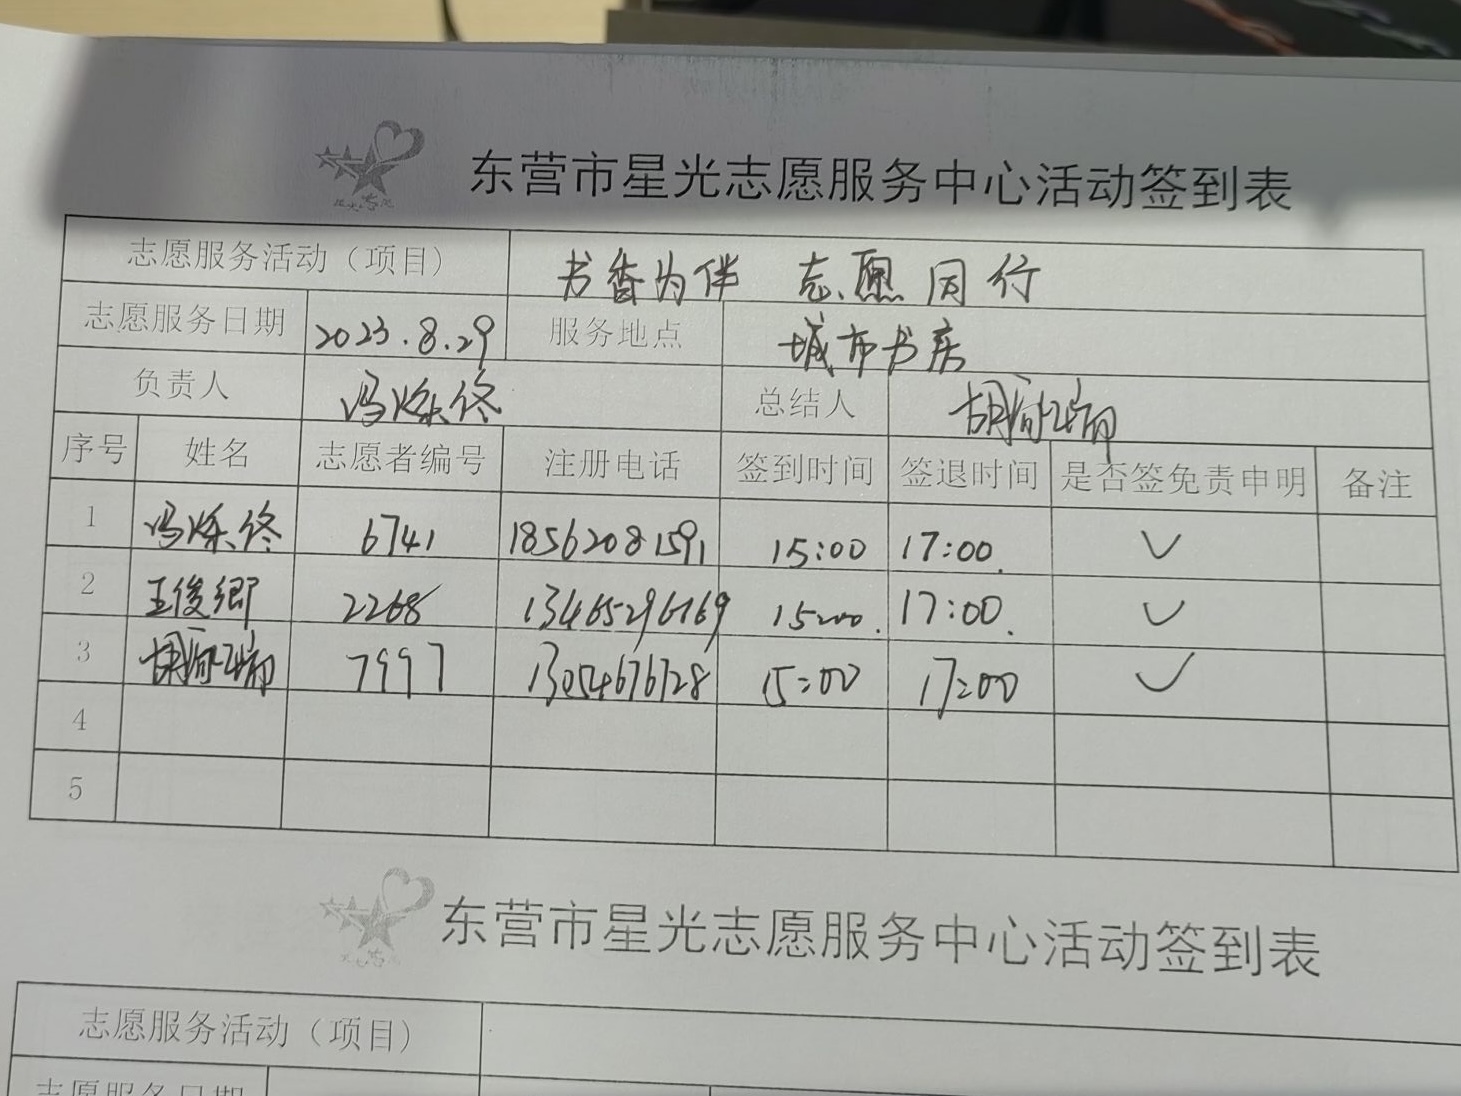 东营市星光志愿服务中心活动签到表
志愿服务活动（项目） 书香为伴 志愿同行
志愿服务日期 2023.8.29 服务地点 城市书房
负责人 冯焕佟 总结人
序号 姓名 志愿者编号 注册电话 签到时间 签退时间 是否签免责申明 备注
1 冯焕佟 6741 18562081591 15:00 17:00. ✓
2 王俊卿 2268 13465296169 15:00. 17:00. ✓
3 7997 13054676728 15:00 17:00 ✓
4
5
东营市星光志愿服务中心活动签到表
志愿服务活动（项目）
志愿服务日期